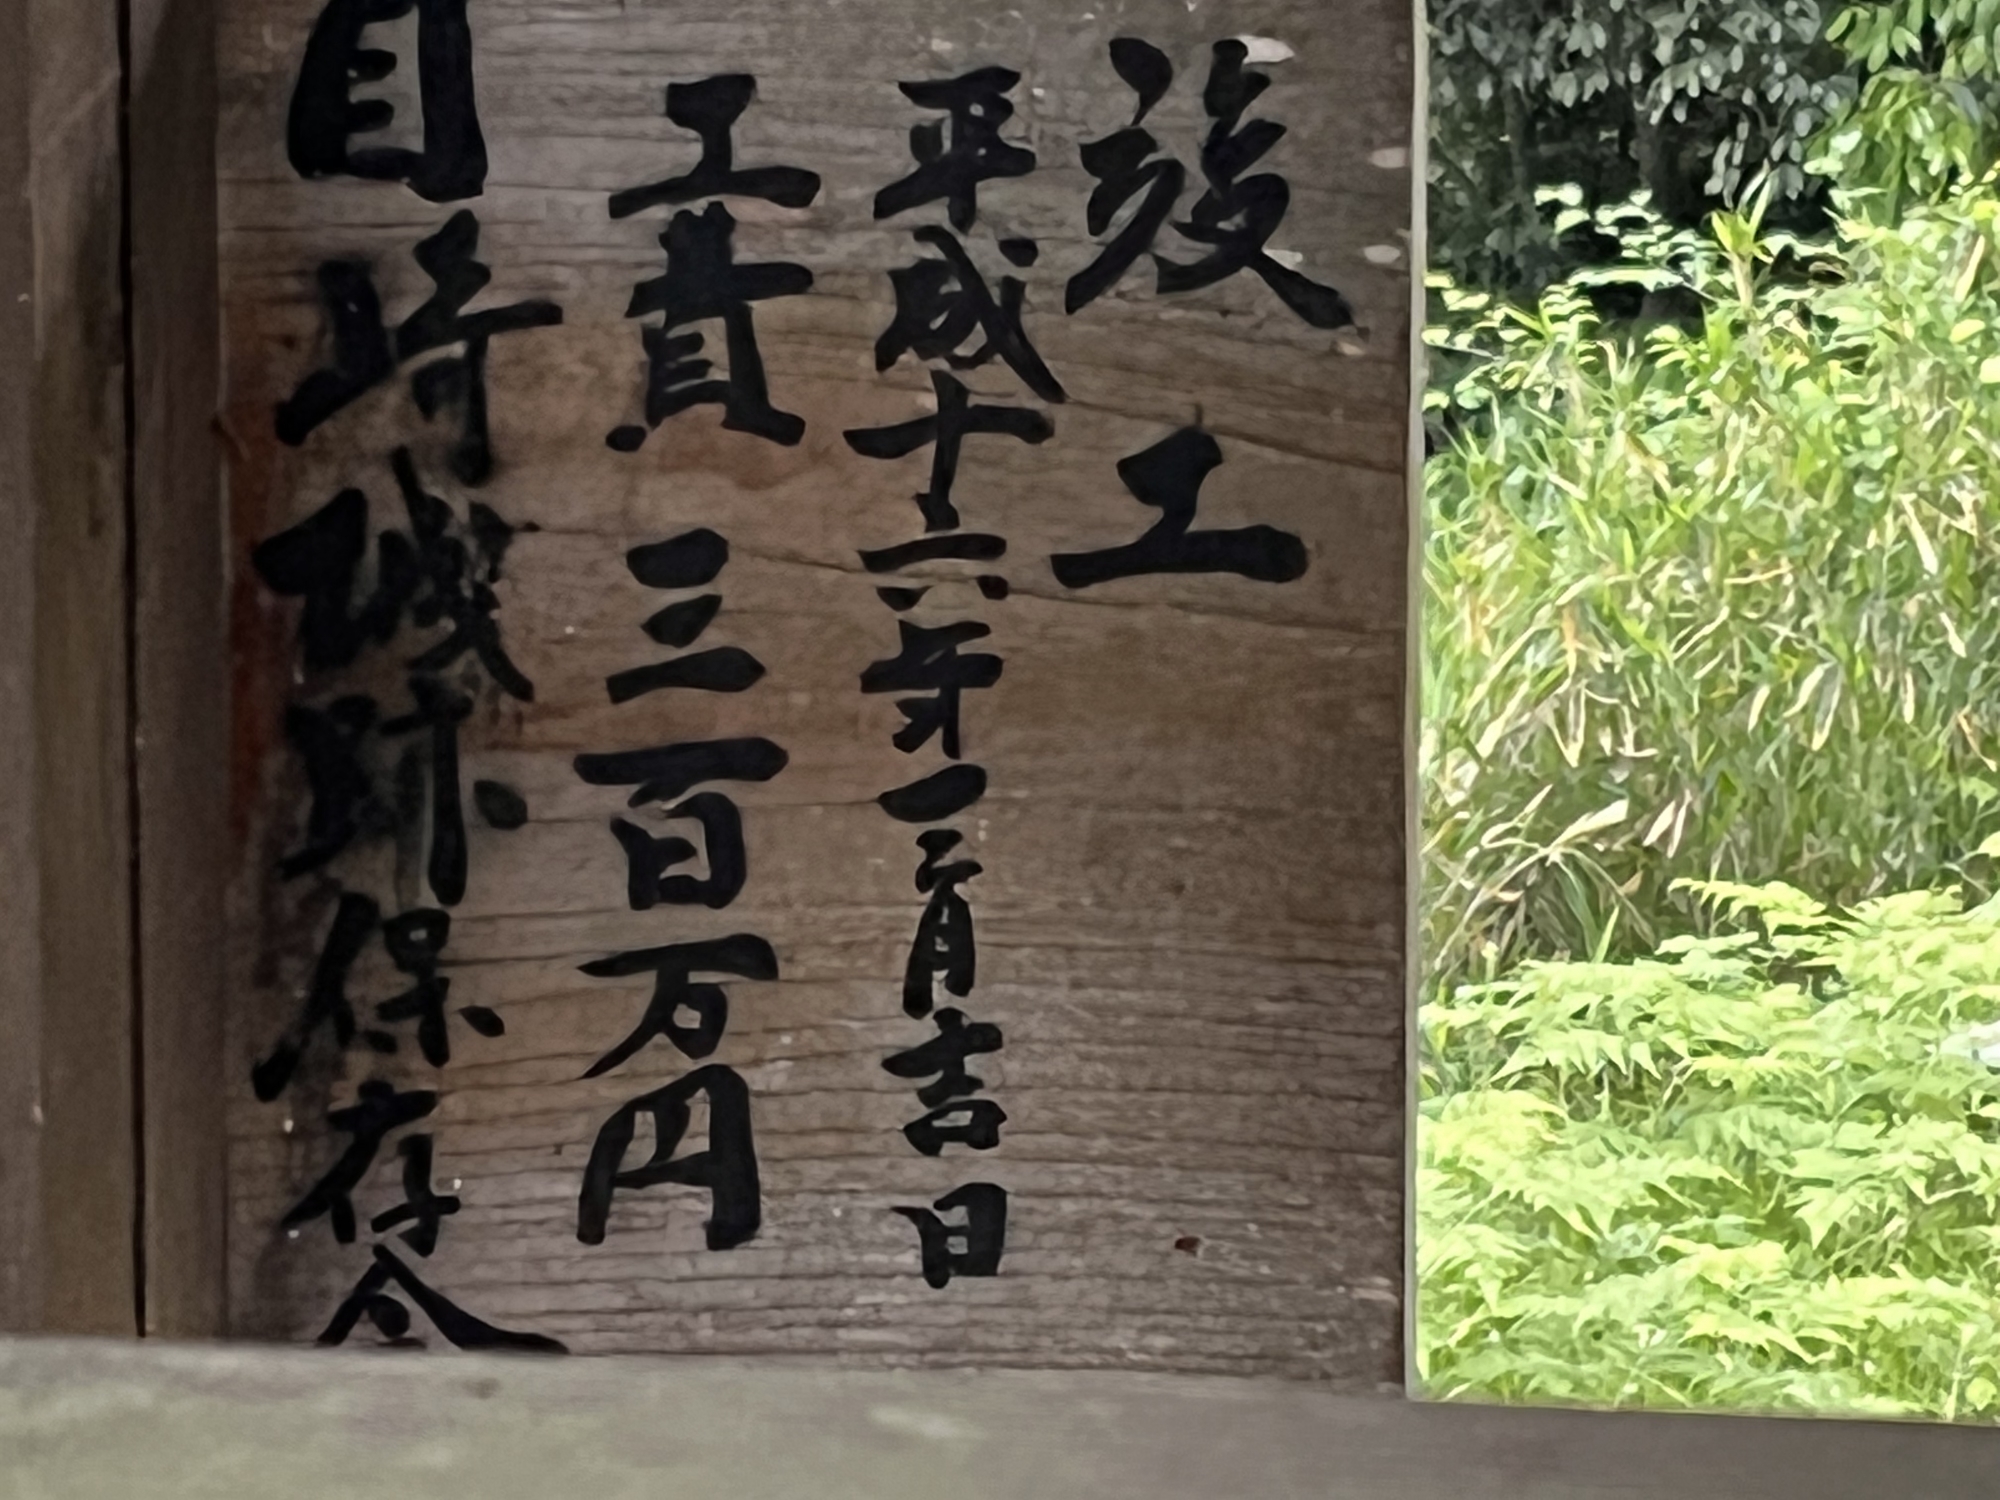 竣工
平成十六年一二月吉日
工費 三百万円
崎城跡保存会